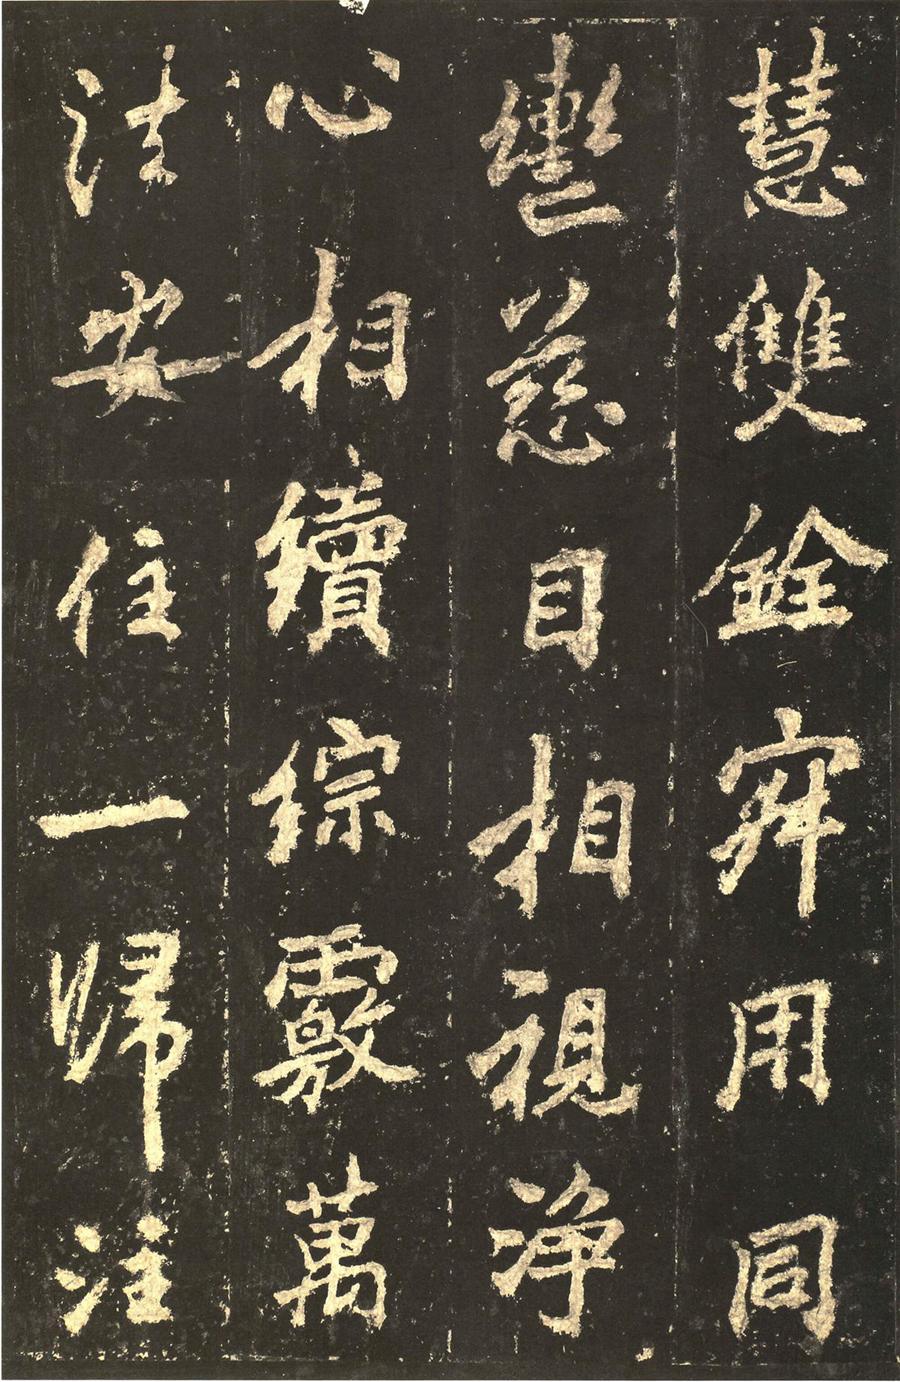 慧雙銓寂用同
轡慈目相視净
心相續綜覈萬
法安住一歸注